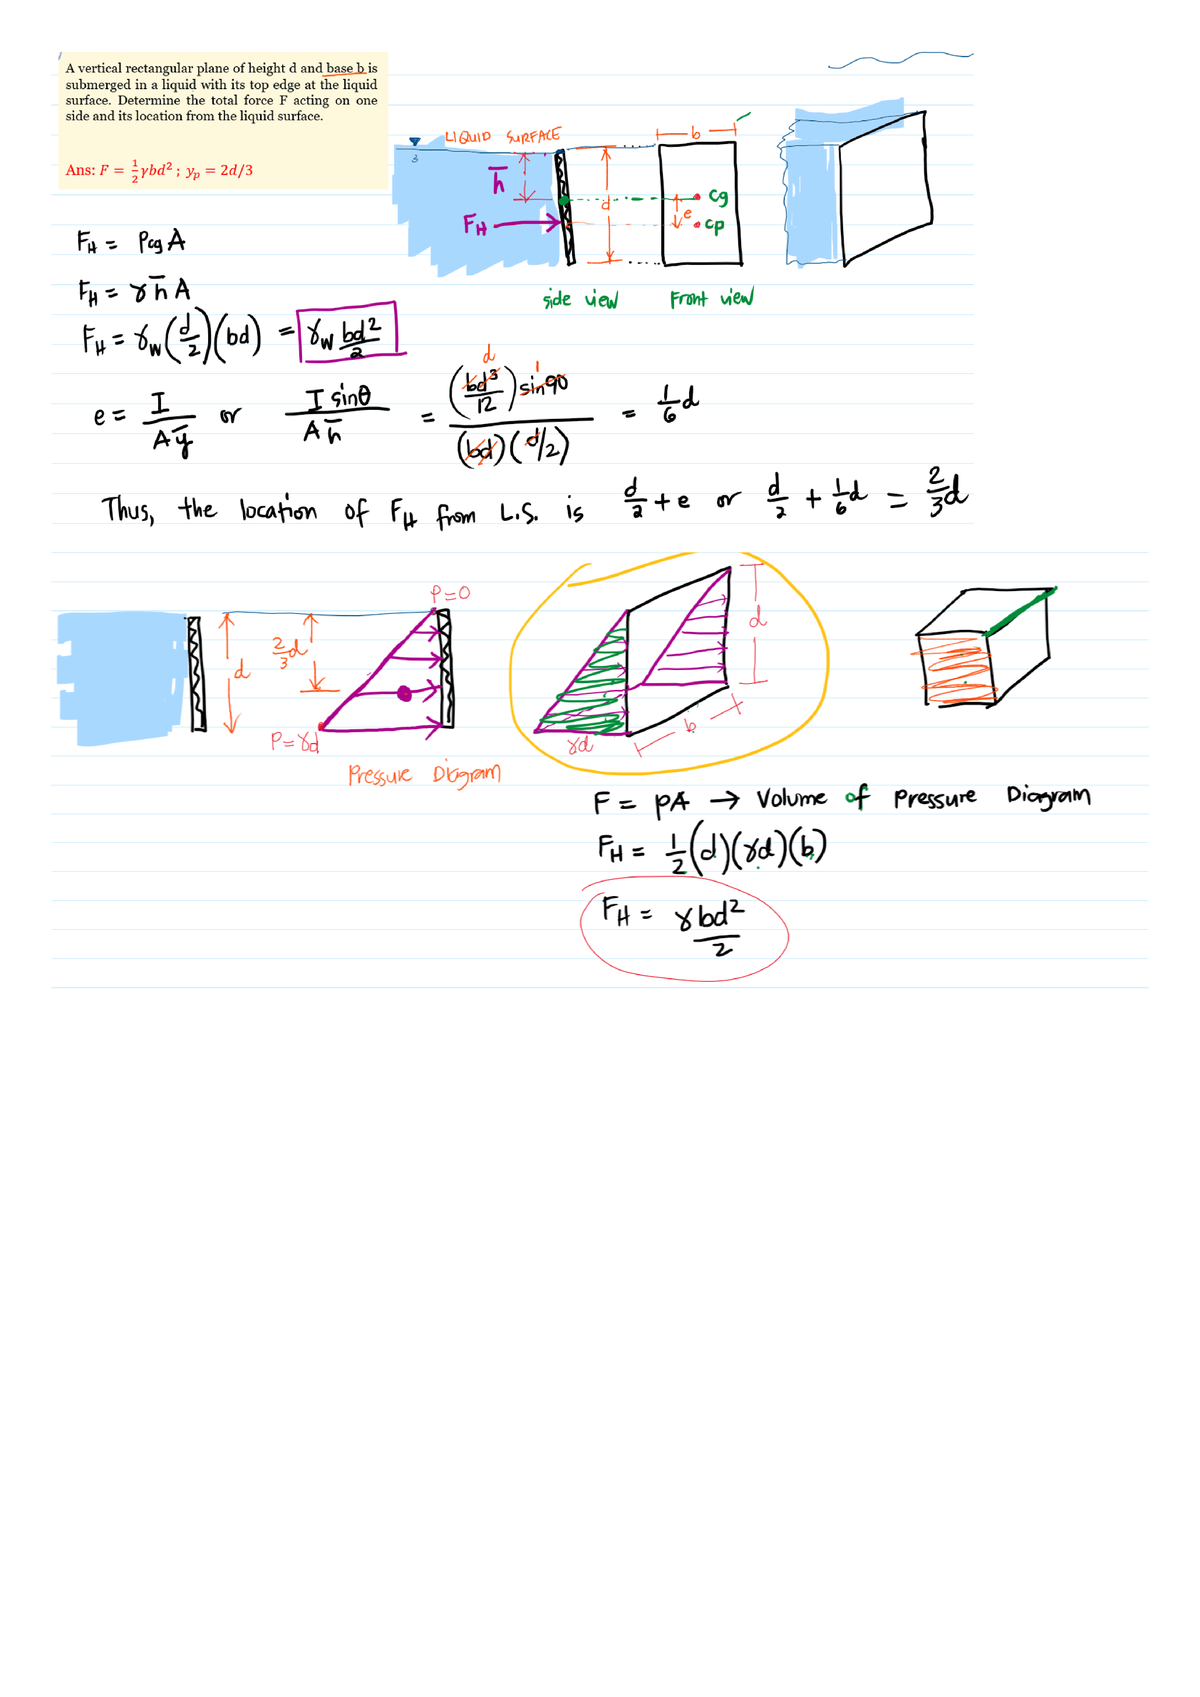 A vertical rectangular plane of height d and base b is
submerged in a liquid with its top edge at the liquid
surface. Determine the total force F acting on one
side and its location from the liquid surface.
Ans: F = 1/2 γbd² ; yₚ = 2d/3
LIQUID SURFACE
b
h̄
d
cg
e
cp
F_H
side view
Front view
F_H = Pcg A
F_H = γ h̄ A
F_H = γ_w (d/2)(bd) = γ_w bd²/2
e = I / Aȳ or I sinθ / A h̄ = (bd³/12) sin90 / (bd)(d/2) = 1/6 d
d
1
Thus, the location of F_H from L.S. is d/2 + e or d/2 + 1/6 d = 2/3 d
P=0
d
2/3 d
d
P=γd
γd
b
Pressure Diagram
F = PA → Volume of Pressure Diagram
F_H = 1/2 (d)(γd)(b)
F_H = γbd²/2